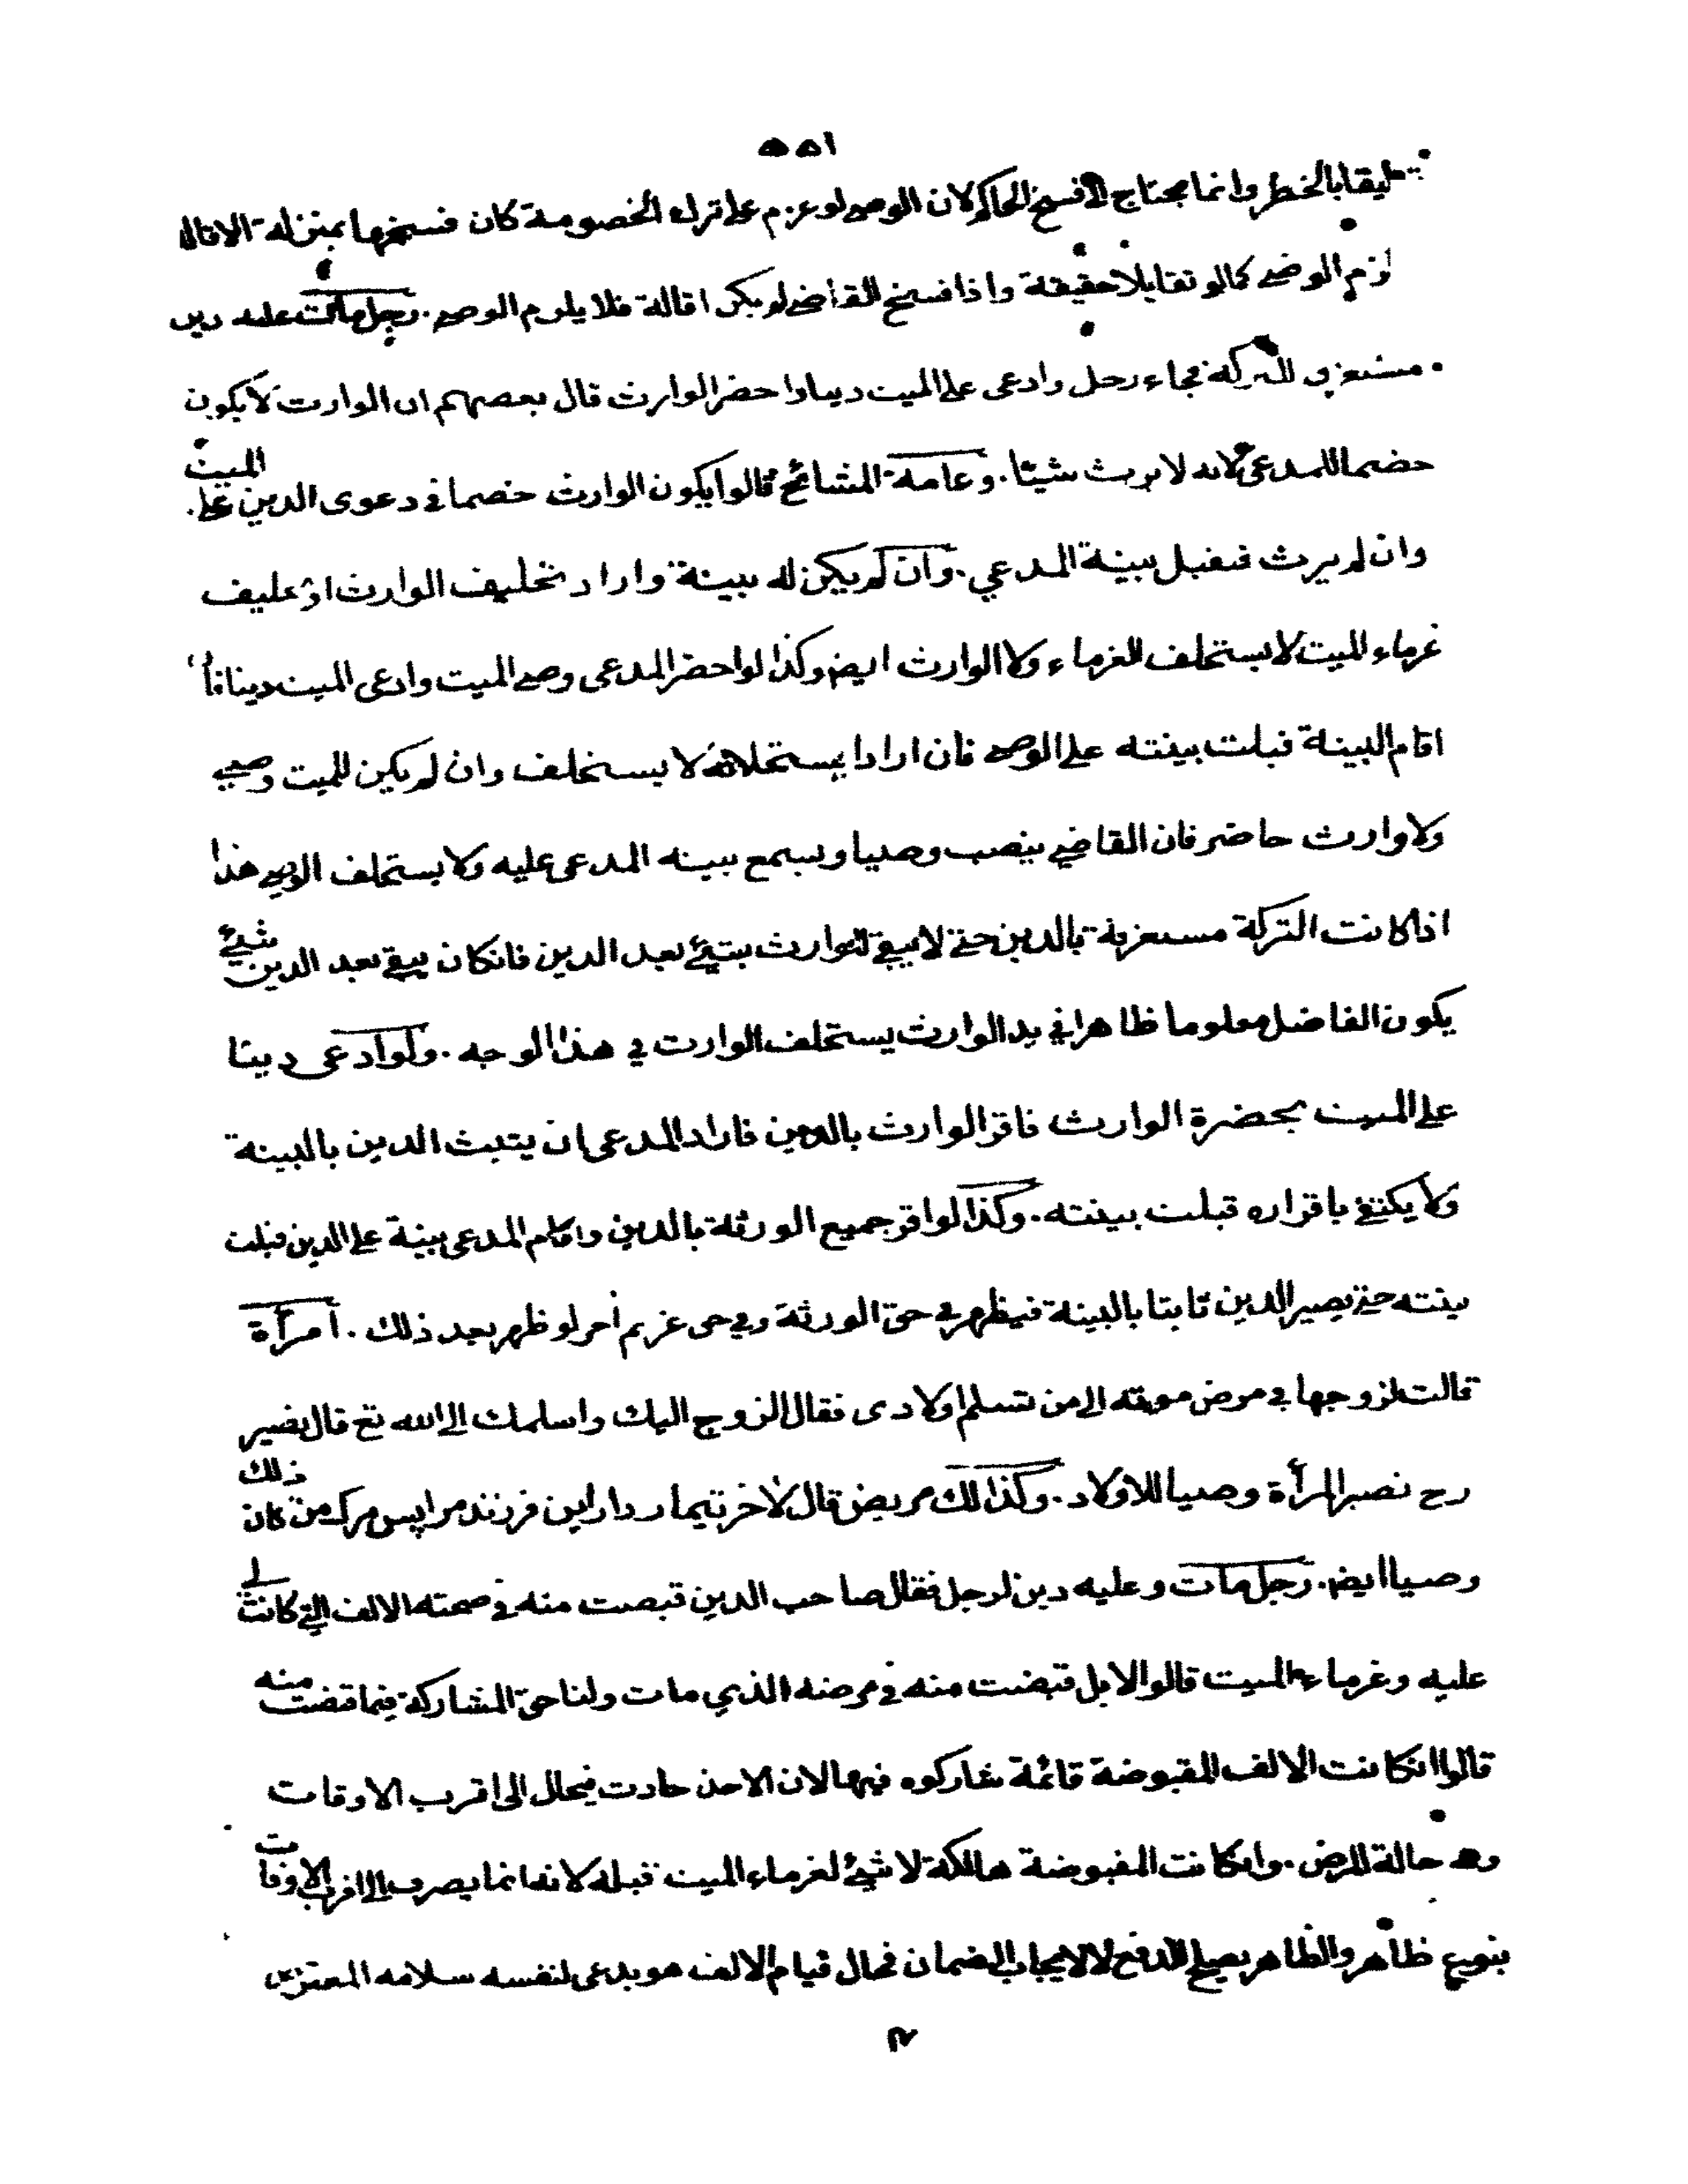 ١٥٥
تعليقا بالخطر وانما يحتاج الى فسخ الحاكم لان الوصى لو عزم على ترك الخصومة كان فسخها بمنزلة الاقالة
لزم الوصى كما لو تقايلا حقيقة واذا فسخ القاضى لم يكن اقالة فلا يلزم الوصى . رجل مات عليه دين
مستغرق للتركة فجاء رجل وادعى على الميت دينا واحضر الوارث قال بعضهم ان الوارث لا يكون
خصما للمدعى لانه لا يرث شيئا . وعامة المشائخ قالوا يكون الوارث خصما في دعوى الدين على الميت
وان لم يرث فيقبل بينة المدعي . وان لم يكن له بينة واراد تحليف الوارث او تحليف
غرماء الميت لا يستحلف الغرماء ولا الوارث ايض وكذا لو احضر المدعى وصى الميت وادعى الميت دينا فأ
اقام البينة قبلت بينته على الوصى فان ارادا يستحلافه لا يستحلف وان لم يكن للميت وصى
ولا وارث حاضر فان القاضي ينصب وصيا ويسمع بينه المدعى عليه ولا يستحلف الوصى هذا
اذا كانت التركة مستغرقة بالدين حتى لا يبقى للوارث شيئ بعد الدين فانكان يبقى بعد الدين شيئ
يكون الفاضل معلوما ظاهرا في يد الوارث يستحلف الوارث في هذا الوجه . ولو ادعى دينا
على الميت بحضرة الوارث فاقر الوارث بالدين فاراد المدعى ان يثبت الدين بالبينة
ولا يكتفى باقراره قبلت بينته . وكذا لو اقر جميع الورثة بالدين واقام المدعى بينة على الدين قبلت
بينته حتى يصير الدين ثابتا بالبينة فيظهر في حق الورثة وفي حق غريم أخر لو ظهر بعد ذلك . امرأة
قالت لزوجها في مرض موته الى من تسلم اولادى فقال الزوج اليك واسلمك الى الله تع قال نصير
رح نصير المرأة وصيا للاولاد . وكذلك مريض قال لاخر تيمار دار اين فرزند مرا پس مرك من كان ذلك
وصيا ايض . رجل مات وعليه دين لرجل فقال صاحب الدين قبضت منه في صحته الالف التي كانت لى
عليه وغرماء الميت قالوا لا بل قبضت منه في مرضه الذي مات ولنا حق المشاركة فيما قبضت منه
قالوا انكانت الالف المقبوضة قائمة شاركوه فيها لان الاخذ حادث فيحال الى اقرب الاوقات
وهى حالة المرض . وانكانت المقبوضة هالكة لا شيئ لغرماء الميت قبله لانه انما يصرف الى اقرب الاوقات
بنوع ظاهر والظاهر يصلح للدفع لا لايجاب الضمان فحال قيام الالف هو يدعى لنفسه سلامه المقبوض